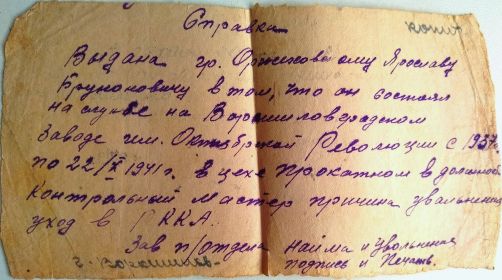 Справка
копия
Выдана гр. Оржиховскому Ярославу
Бруноновичу в том, что он состоял
на службе на Ворошиловградском
Заводе им. Октябрьской Революции с 1937
по 22/X 1941 г. в цехе прокатном в должности
контрольный мастер причина увольнения
уход в РККА.
Зав п/отдела найма и увольнения
подпись и Печать.